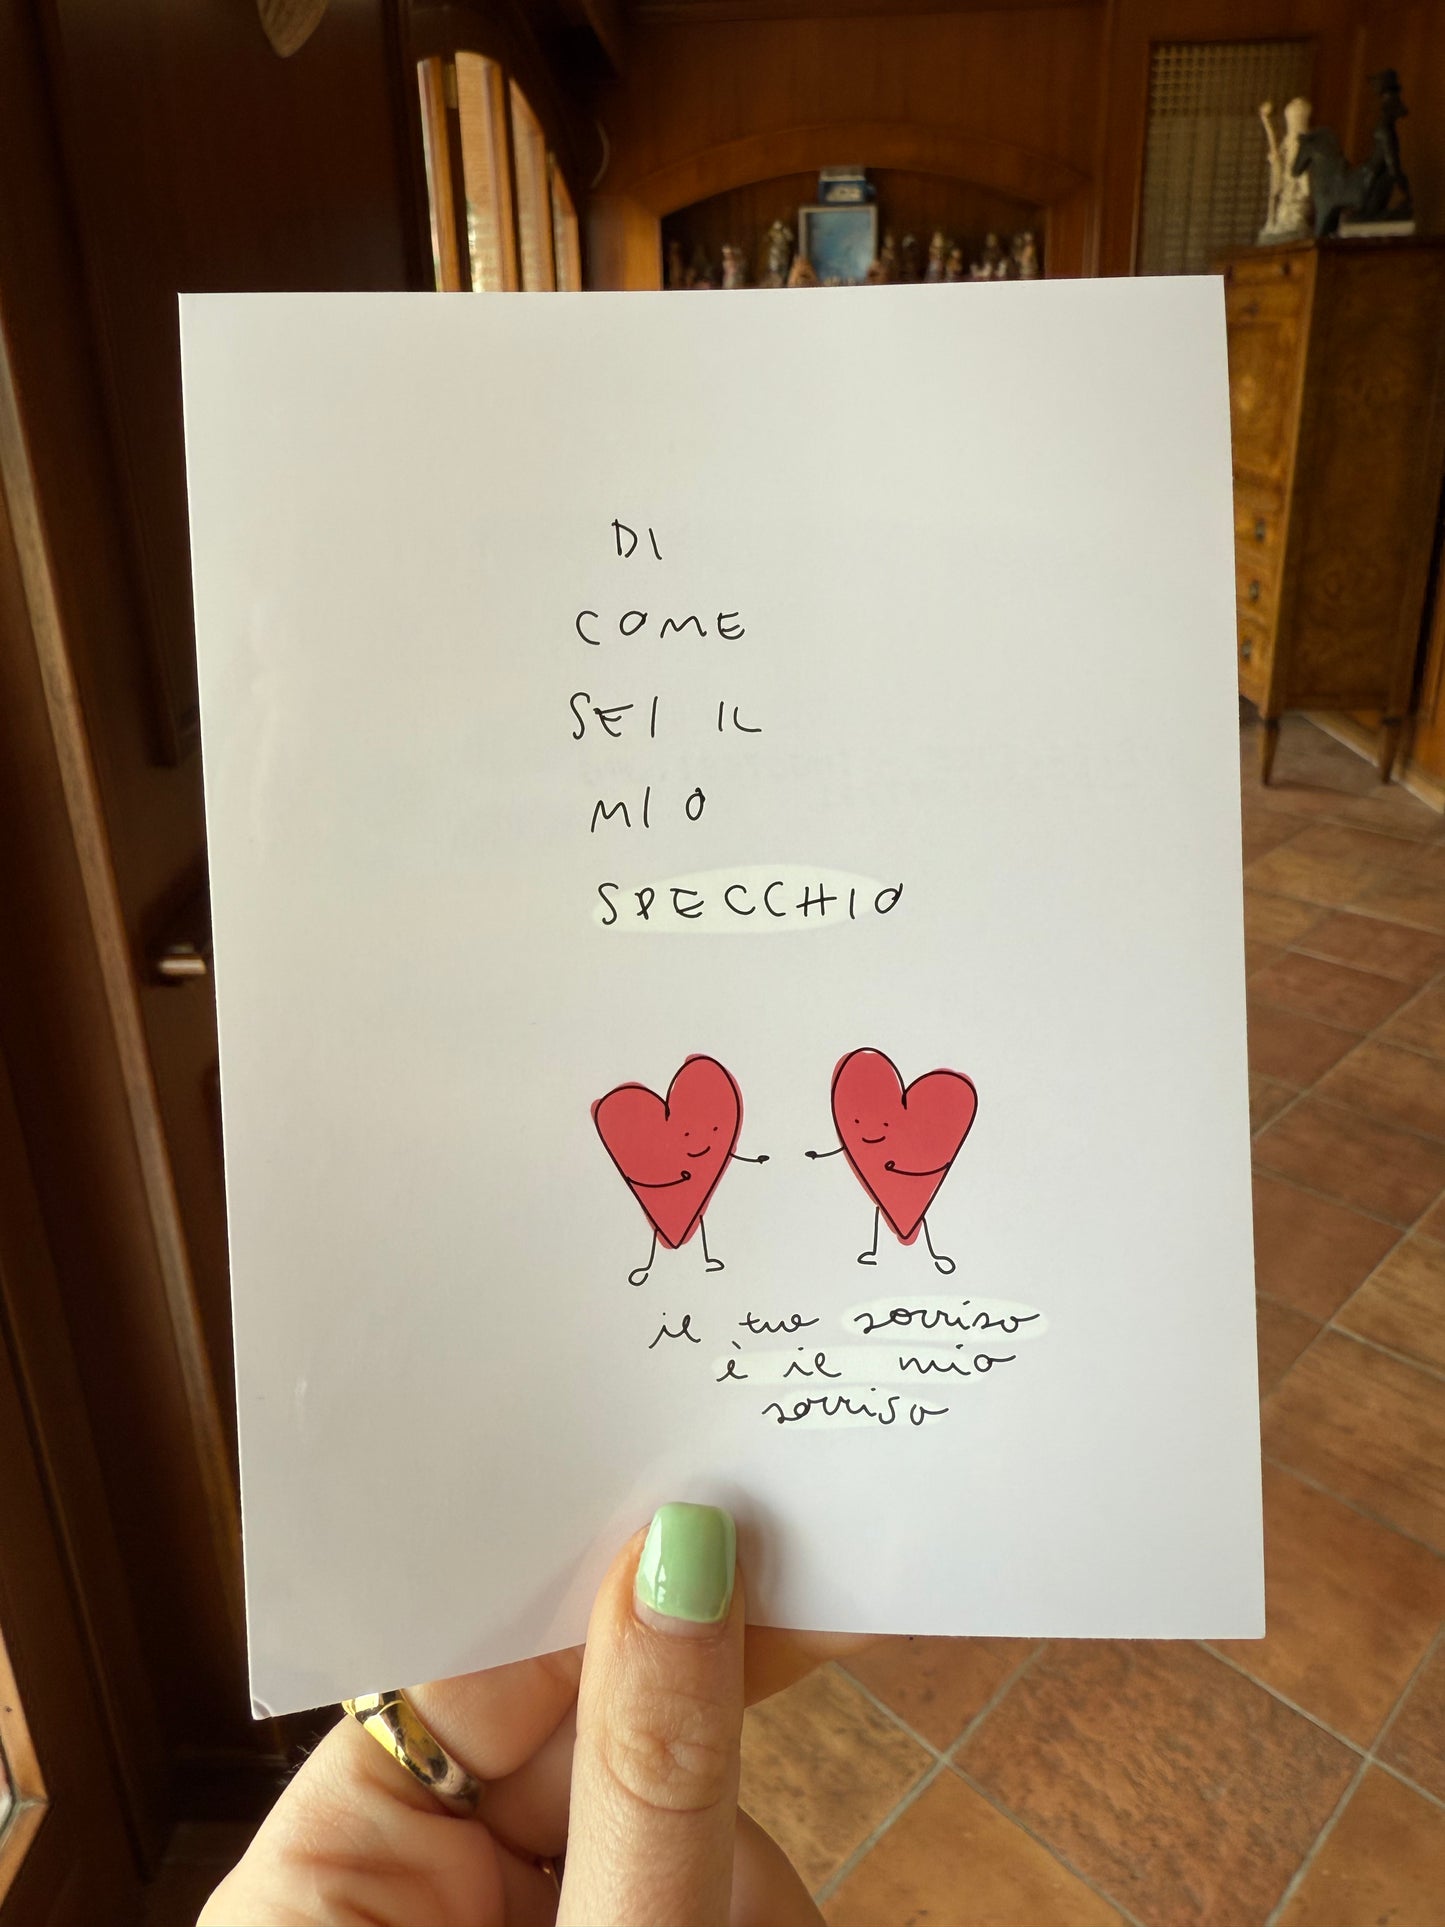 DI
COME
SEI IL
MIO
SPECCHIO
il tuo sorriso
è il mio
sorriso